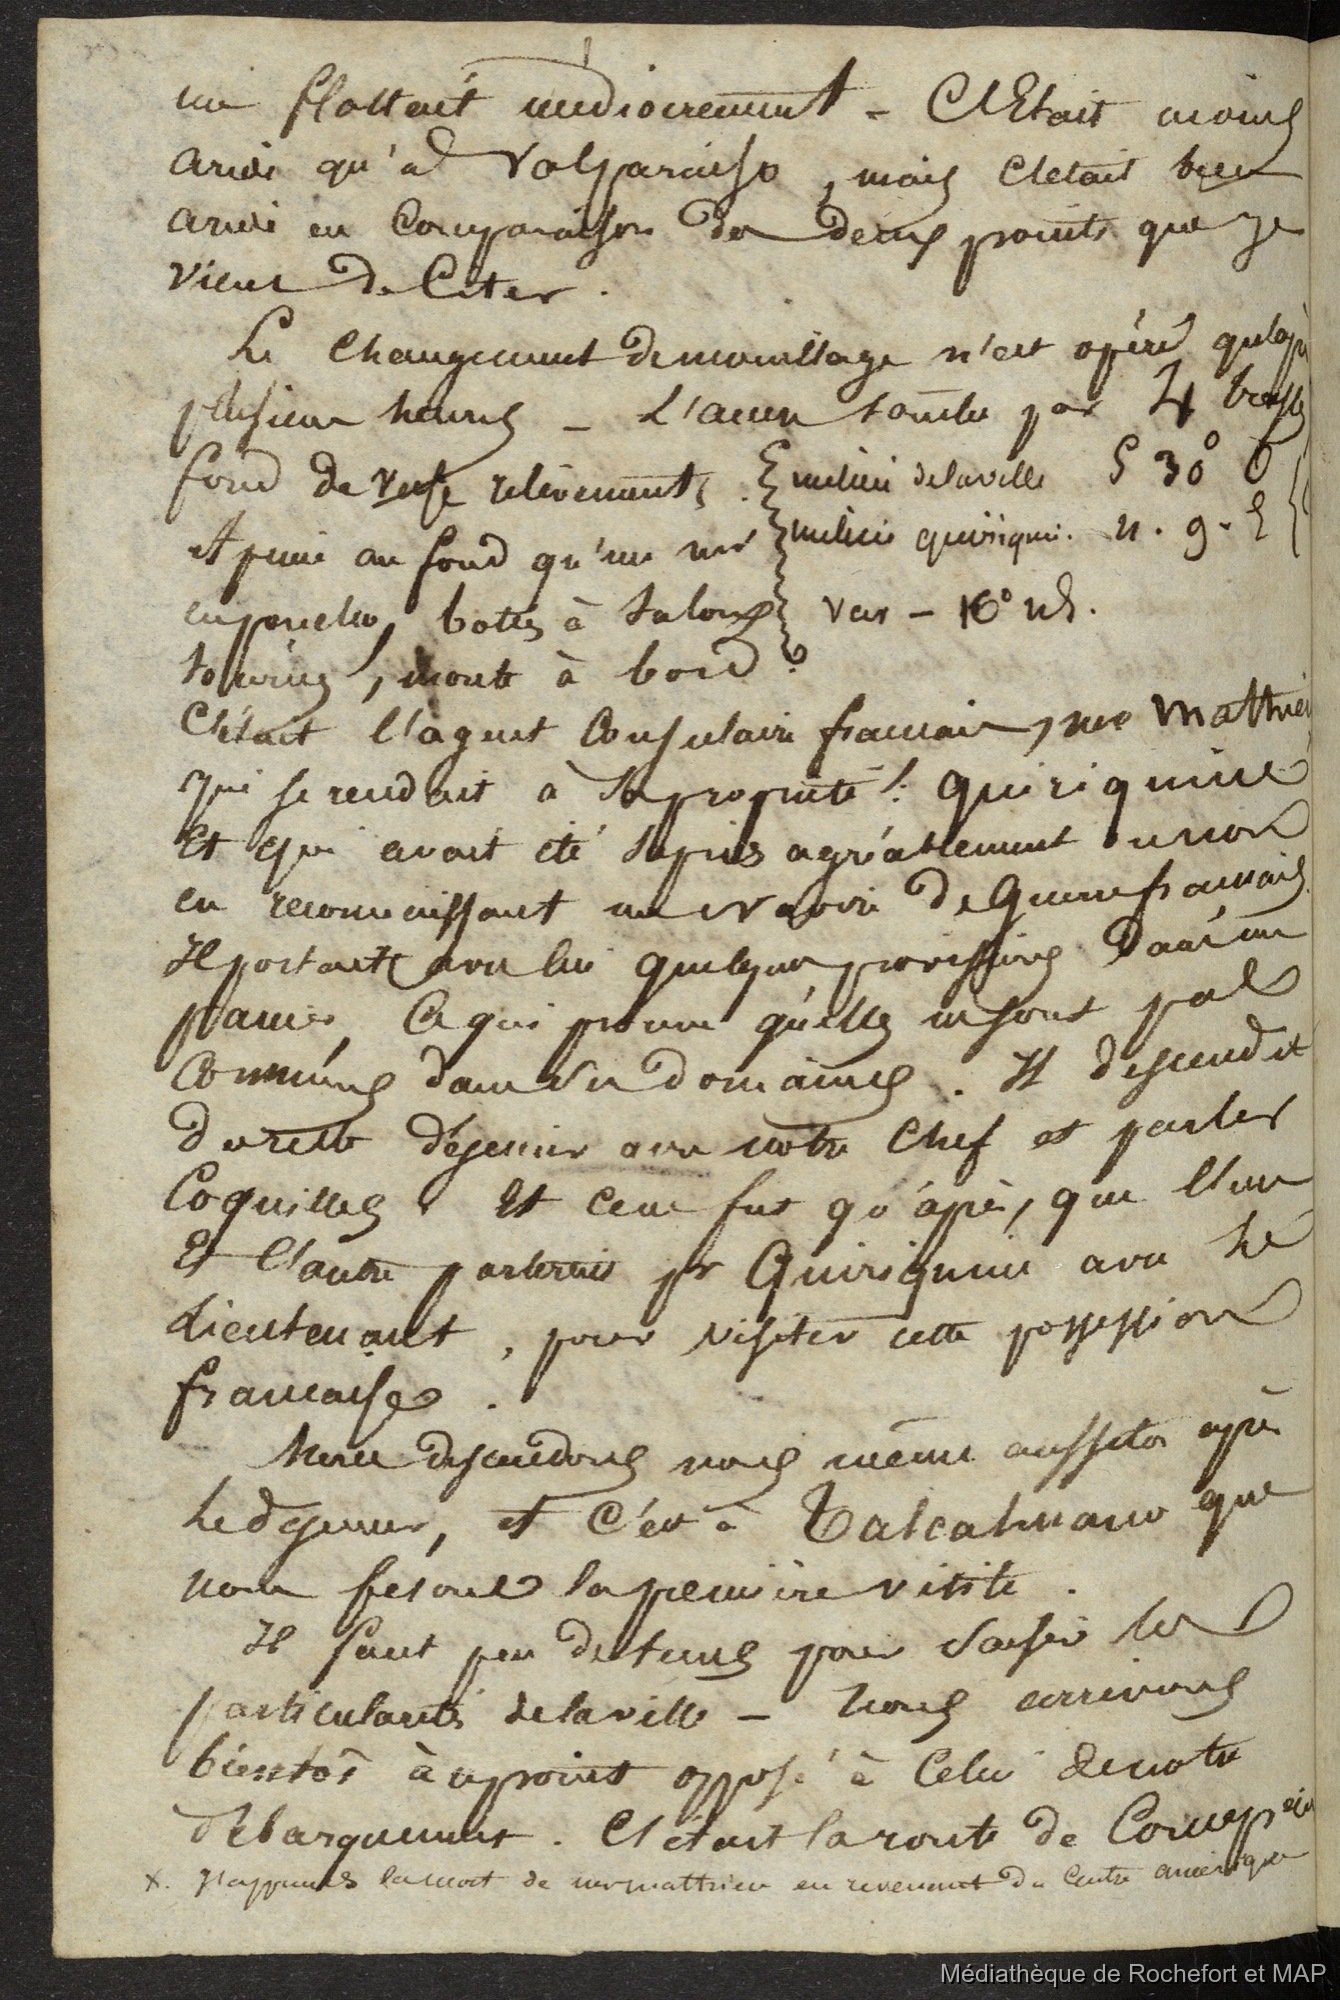 me flattait médiocrement - C'Etait moins
aride qu'à Valparaiso, mais c'etait bien
aride en comparaison des deux points que je
viens de Citer.
Le Changement de mouillage n'est opéré qu'après
plusieurs heures - L'ancre tombe par 4 brasses
fond de vase relèvements. milieu de la ville S 30° O
milieu quiriquine. n. 9. E
et peine au fond qu'un mr
en poncho, bottes à talons Var - 16° NE.
, monte à bord.
C'était l'agent Consulaire francais, mr Mathieu
qui se rendait à sa propriété : Quiriquine
Et qui avait été surpris agréablement
en reconnaissant un Navire de Guerre francais.
Il portait avec lui quelques provisions dans un
panier, Ce qui prouve qu'elles ne sont pas
Communes dans ses domaines. Il descendit
de suite déjeuner avec notre Chef et parler
Coquilles. Et Ce ne fut qu'après, que l'un
Et l'autre partirent pr Quiriquine avec Le
Lieutenant, pour visiter cette possession
francaise.
Nous descendons nous même aussitot après
Le déjeuner, et C'est à Talcahuano que
nous fesons la premiere visite.
Il faut peu de tems pour saisir les
particularités de la ville - Nous arrivons
bientôt à un point opposé à Celui de notre
débarquement. C'était la route de Concepcion
x. J'apprends la mort de mr mathieu en revenant du Centre amerique
Médiathèque de Rochefort et MAP